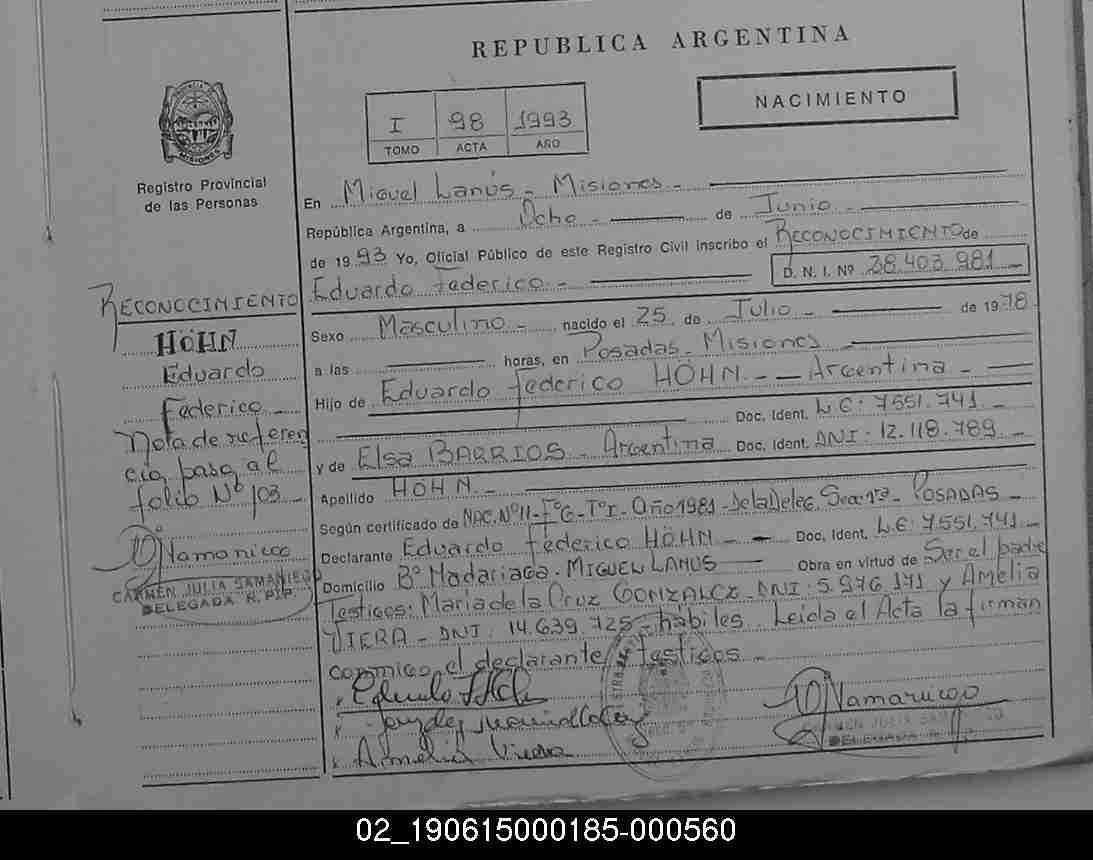 REPUBLICA ARGENTINA
NACIMIENTO
I 98 1993
TOMO ACTA AÑO
PROVINCIA DE
MISIONES
Registro Provincial
de las Personas
En Miguel Lanús - Misiones -
República Argentina, a Ocho - de Junio
de 1993 Yo, Oficial Público de este Registro Civil inscribo el RECONOCIMIENTO de
Eduardo Federico - D. N. I. Nº 28.403.981 -
Sexo Masculino - nacido el 25 de Julio - de 1978
a las horas, en Posadas - Misiones
Hijo de Eduardo Federico HÖHN - Argentina -
Doc. Ident. L.E: 7551.741 -
y de Elsa BARRIOS - Argentina Doc. Ident. DNI: 12.118.789 -
Apellido HÖHN -
Según certificado de NAC. Nº 11 - Fº 6 - Tº I - Año 1981 - De la Deleg. Secc 1ra - POSADAS -
Declarante Eduardo Federico HÖHN - Doc. Ident. L.E: 7.551.741 -
Domicilio Bº Madariaga - MIGUEL LANUS Obra en virtud de Ser el padre
Testigos: Maria de la Cruz GONZALEZ - DNI: 5.976.171 y Amelia
VIERA - DNI: 14.639.725 - hábiles. Leída el Acta la firman
conmigo el declarante testigos -
Amelia Viera
CARMEN JULIA SAMANIEGO
DELEGADA R.P.P.
RECONOCIMIENTO
HÖHN
Eduardo
Federico -
Nota de referen
cia pasa al
folio Nº 103 -
CARMEN JULIA SAMANIEGO
DELEGADA R.P.P.
02_190615000185-000560